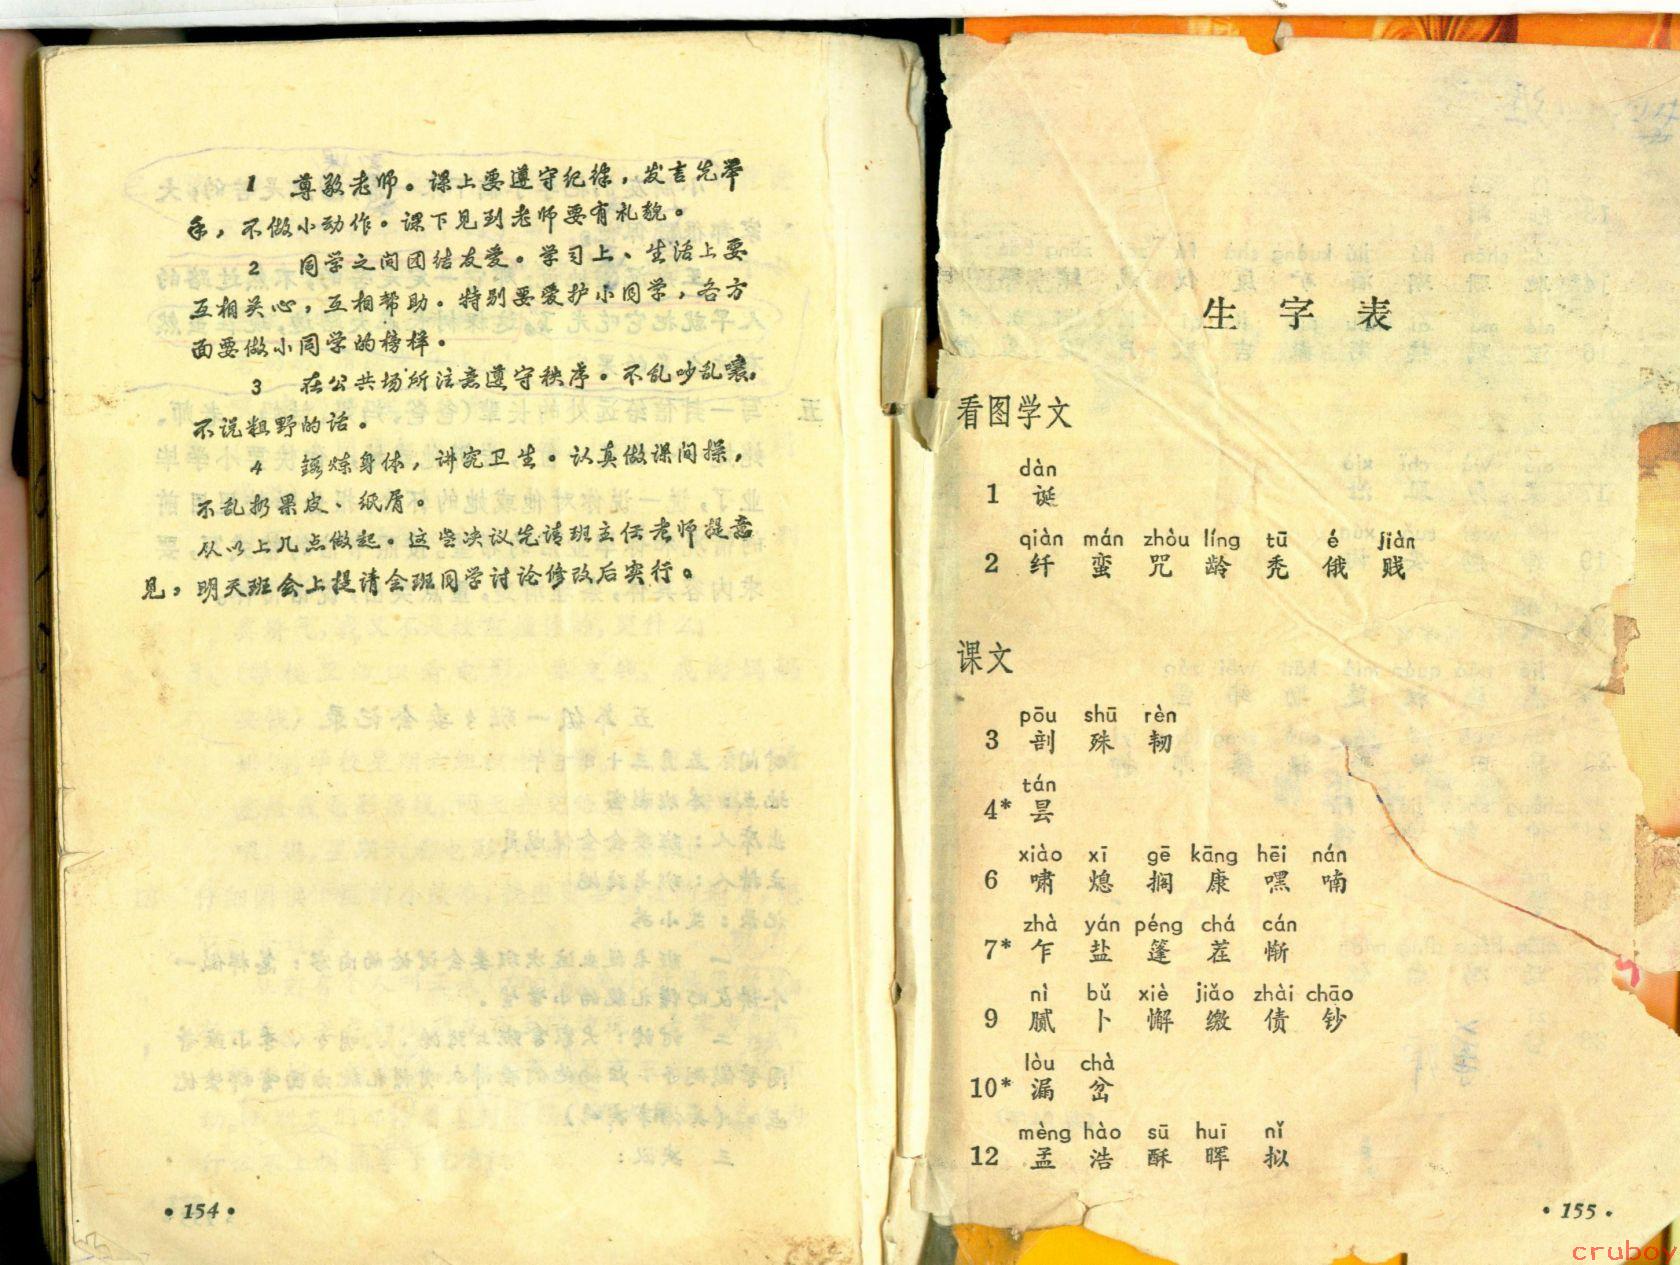 1 尊敬老师。课上要遵守纪律，发言先举
手，不做小动作。课下见到老师要有礼貌。
2 同学之间团结友爱。学习上、生活上要
互相关心，互相帮助。特别要爱护小同学，各方
面要做小同学的榜样。
3 在公共场所注意遵守秩序。不乱吵乱嚷，
不说粗野的话。
4 锻炼身体，讲究卫生。认真做课间操，
不乱扔果皮、纸屑。
从以上几点做起。这些决议先请班主任老师提意
见，明天班会上提请全班同学讨论修改后实行。
• 154 •
生字表
看图学文
dàn
1 诞
qiàn mán zhòu líng tū é jiàn
2 纤 蛮 咒 龄 秃 俄 贱
课文
pōu shū rèn
3 剖 殊 韧
tán
4* 昙
xiào xī gē kāng hēi nán
6 啸 熄 搁 康 嘿 喃
zhà yán péng chá cán
7* 乍 盐 篷 茬 惭
nì bǔ xiè jiǎo zhài chāo
9 腻 卜 懈 缴 债 钞
lòu chà
10* 漏 岔
mèng hào sū huī nǐ
12 孟 浩 酥 晖 拟
• 155 •
cruboy